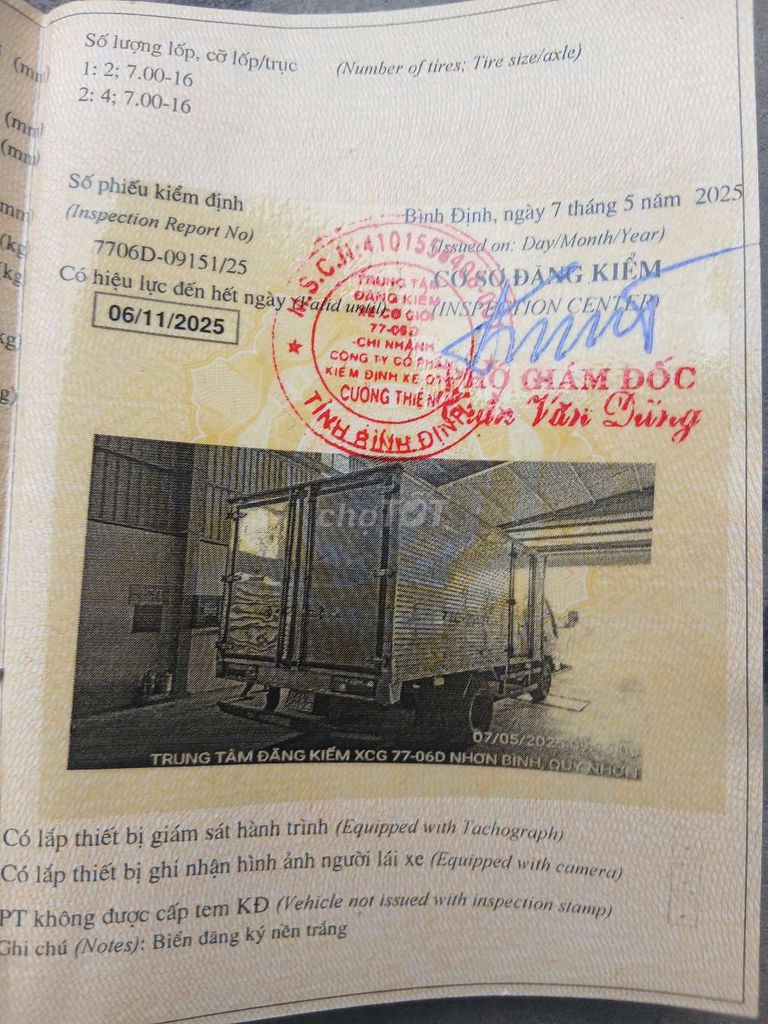 Số lượng lốp, cỡ lốp/trục (Number of tires; Tire size/axle)
1: 2; 7.00-16
2: 4; 7.00-16
(mm)
(mm)
(mm)
mm)
(kg)
(kg)
kg)
g)
Số phiếu kiểm định
(Inspection Report No)
7706D-09151/25
Có hiệu lực đến hết ngày (Valid until)
06/11/2025
Bình Định, ngày 7 tháng 5 năm 2025
(Issued on: Day/Month/Year)
CƠ SỞ ĐĂNG KIỂM
(INSPECTION CENTER)
M.S.C.N:41015
TRUNG TÂM
ĐĂNG KIỂM
XE CƠ GIỚI
77-06D
-CHI NHÁNH
CÔNG TY CỔ PHẦN
KIỂM ĐỊNH XE
CƯỜNG THIÊN
TỈNH BÌNH ĐỊNH
PHÓ GIÁM ĐỐC
Văn Dũng
chợTỐT
07/05/2025
TRUNG TÂM ĐĂNG KIỂM XCG 77-06D NHƠN BÌNH, QUY NHƠN
Có lắp thiết bị giám sát hành trình (Equipped with Tachograph)
Có lắp thiết bị ghi nhận hình ảnh người lái xe (Equipped with camera)
PT không được cấp tem KĐ (Vehicle not issued with inspection stamp)
Ghi chú (Notes): Biển đăng ký nền trắng